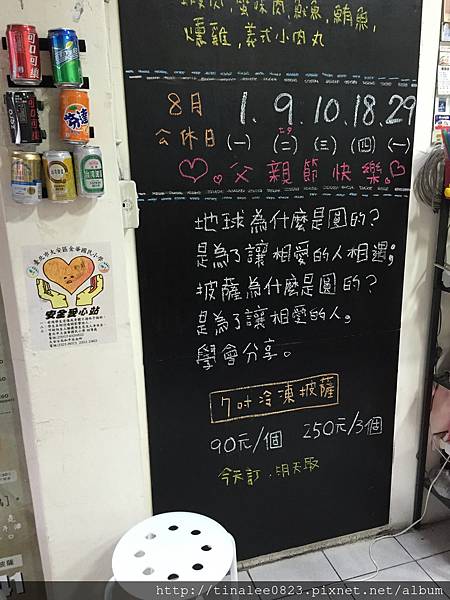 燻雞,義式小肉丸
8月 1. 9. 10. 18. 29
公休日 (一) (二) (三) (四) (一)
♡。父親節快樂♡
地球為什麼是圓的?
是為了讓相愛的人相遇;
披薩為什麼是圓的?
是為了讓相愛的人,
學會分享。
7吋冷凍披薩
90元/個 250元/3個
今天訂,明天取
可口可樂
臺北市大安區金華國民小學
安全愛心站
http://tinalee0823.pixnet.net/album